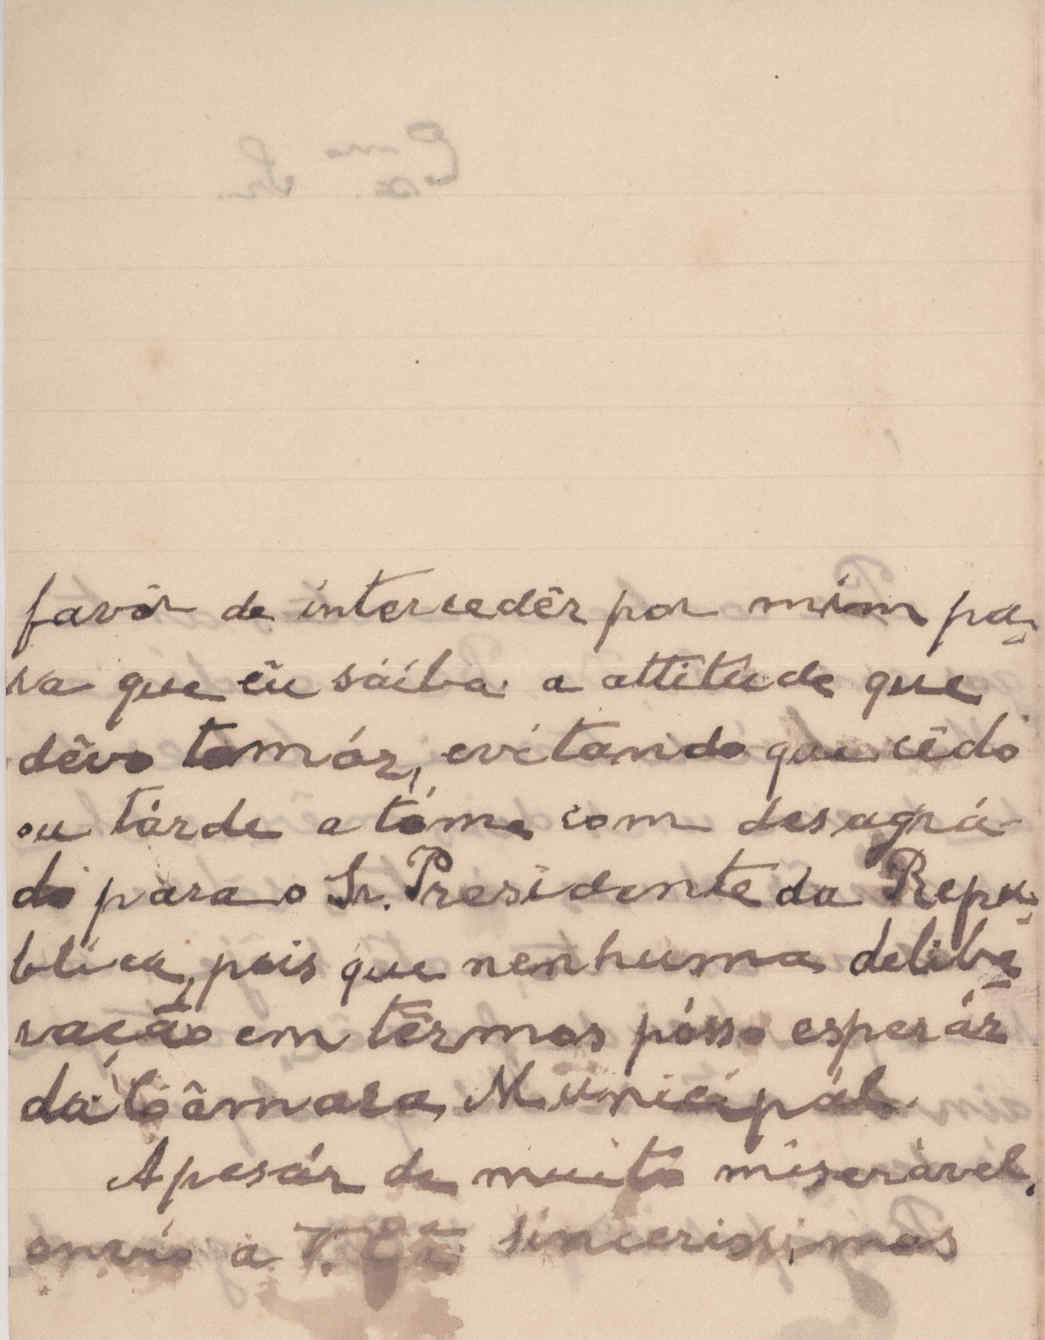 favôr de intercedêr por mim pa-
ra que eu sáiba a attitude que
dêvo tomár, evitando que cêdo
ou tárde a tóme com desagrá-
do para o Sr. Presidente da Repu-
blica, pois que nenhuma delibe-
ração em têrmos pósso esperár
da Câmara Municipál.
Apesár de muito miserável,
envio a V. Ex.ª sincerissimos